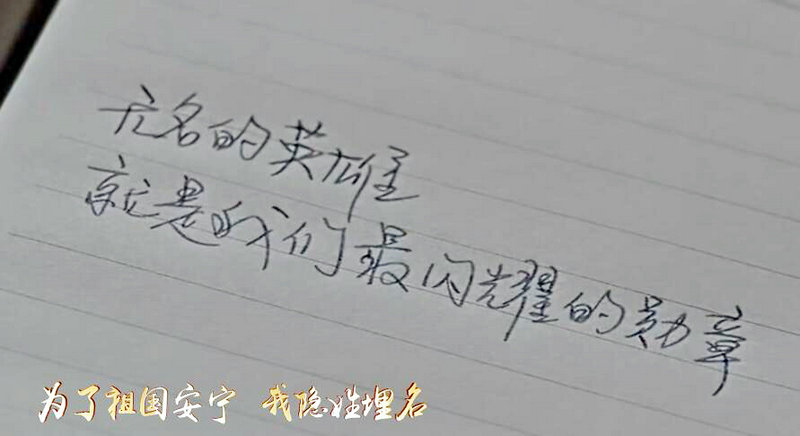 无名的英雄
就是我们最闪耀的勋章
为了祖国安宁 我隐姓埋名